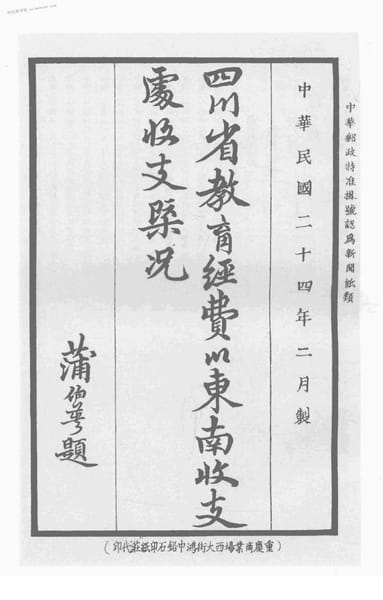 中華郵政特准掛號認爲新聞紙類
中華民國二十四年二月製
四川省教育經費川東南收支
處收支槩况
蒲伯英題
（重慶商業場西大街鴻中鉛石印紙莊代印）